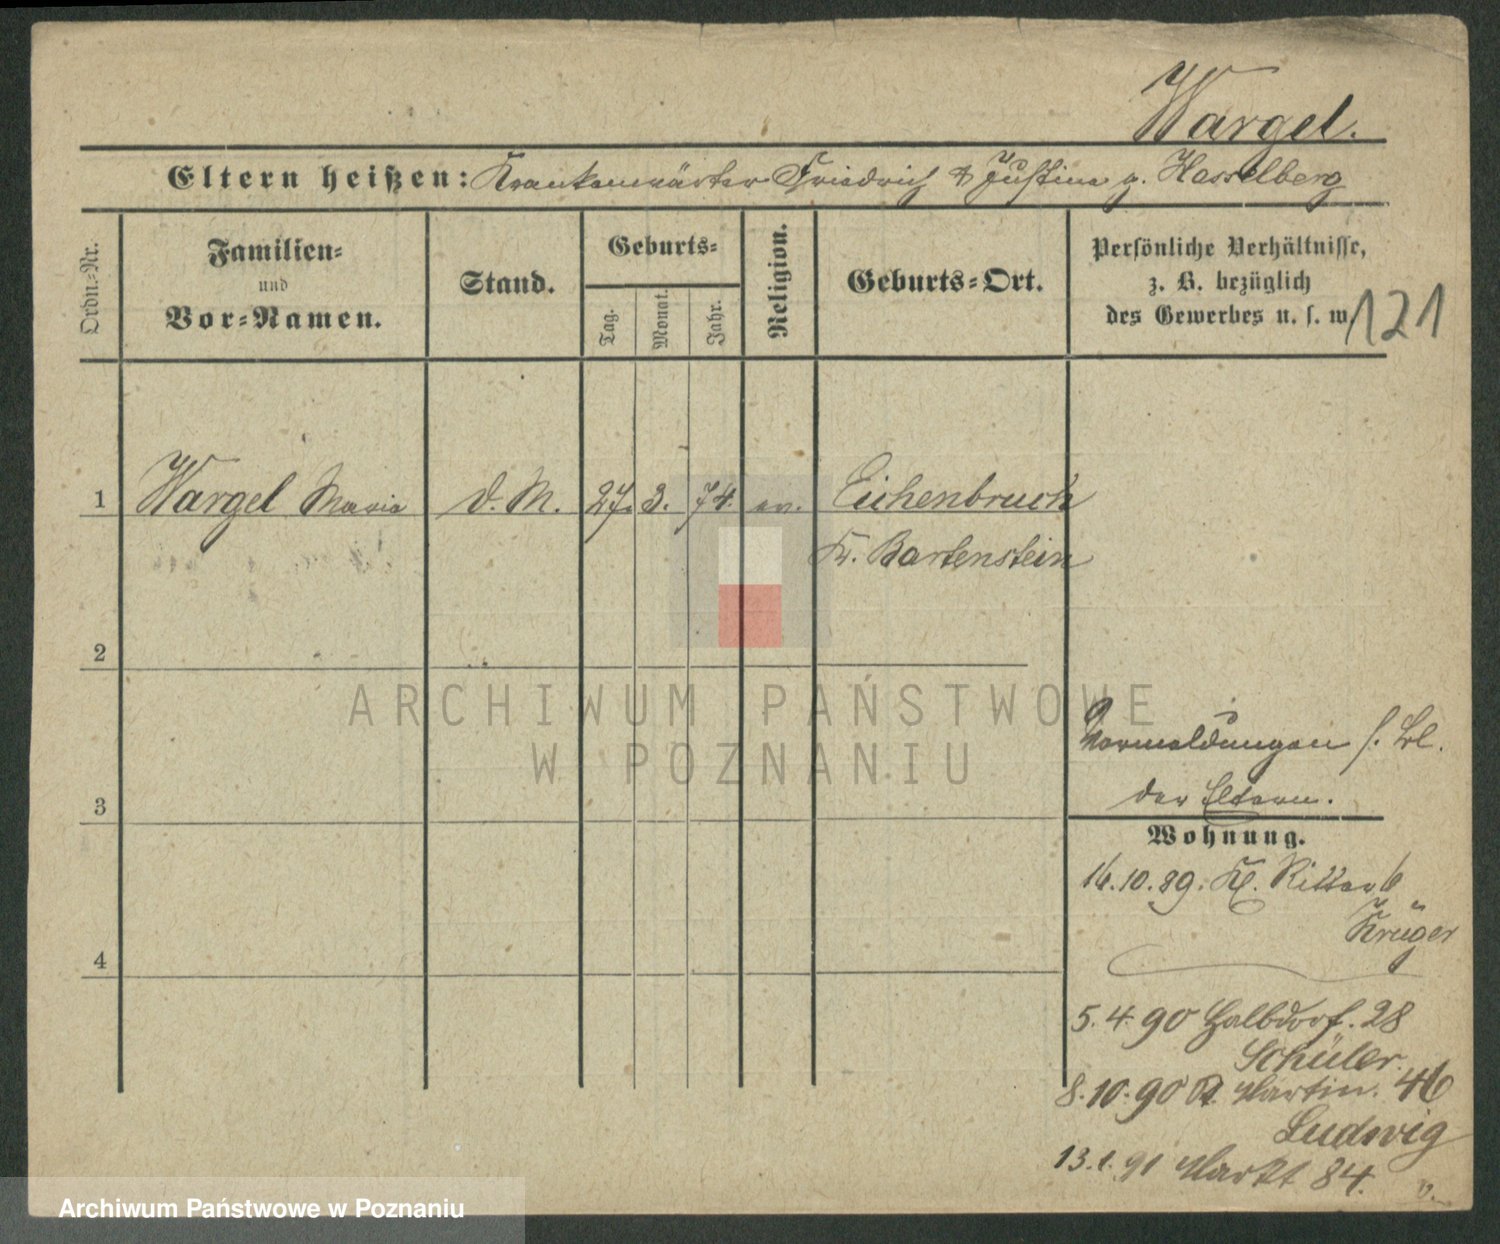 Wargel.
Eltern heißen: Krankenwärter Friedrich & Justine g. Hasselberg
Ordn.-Nr.
Familien-
und
Vor-Namen.
Stand.
Geburts-
Tag.
Monat.
Jahr.
Religion.
Geburts-Ort.
Persönliche Verhältnisse,
z. B. bezüglich
des Gewerbes u. s. w.
121
1 Wargel Maria d. M. 27. 3. 74. ev. Eichenbruch
Kr. Bartenstein
2
ARCHIWUM PAŃSTWOWE
W POZNANIU
Vormeldungen s. Bl.
der Eltern.
3
Wohnung.
16.10.89. Kl. Ritter 6
Krüger
4
5.4.90 Halbdorf. 28
Schüler.
8.10.90 St. Martin. 46
Ludwig
13.1.91 Markt 84.
Archiwum Państwowe w Poznaniu